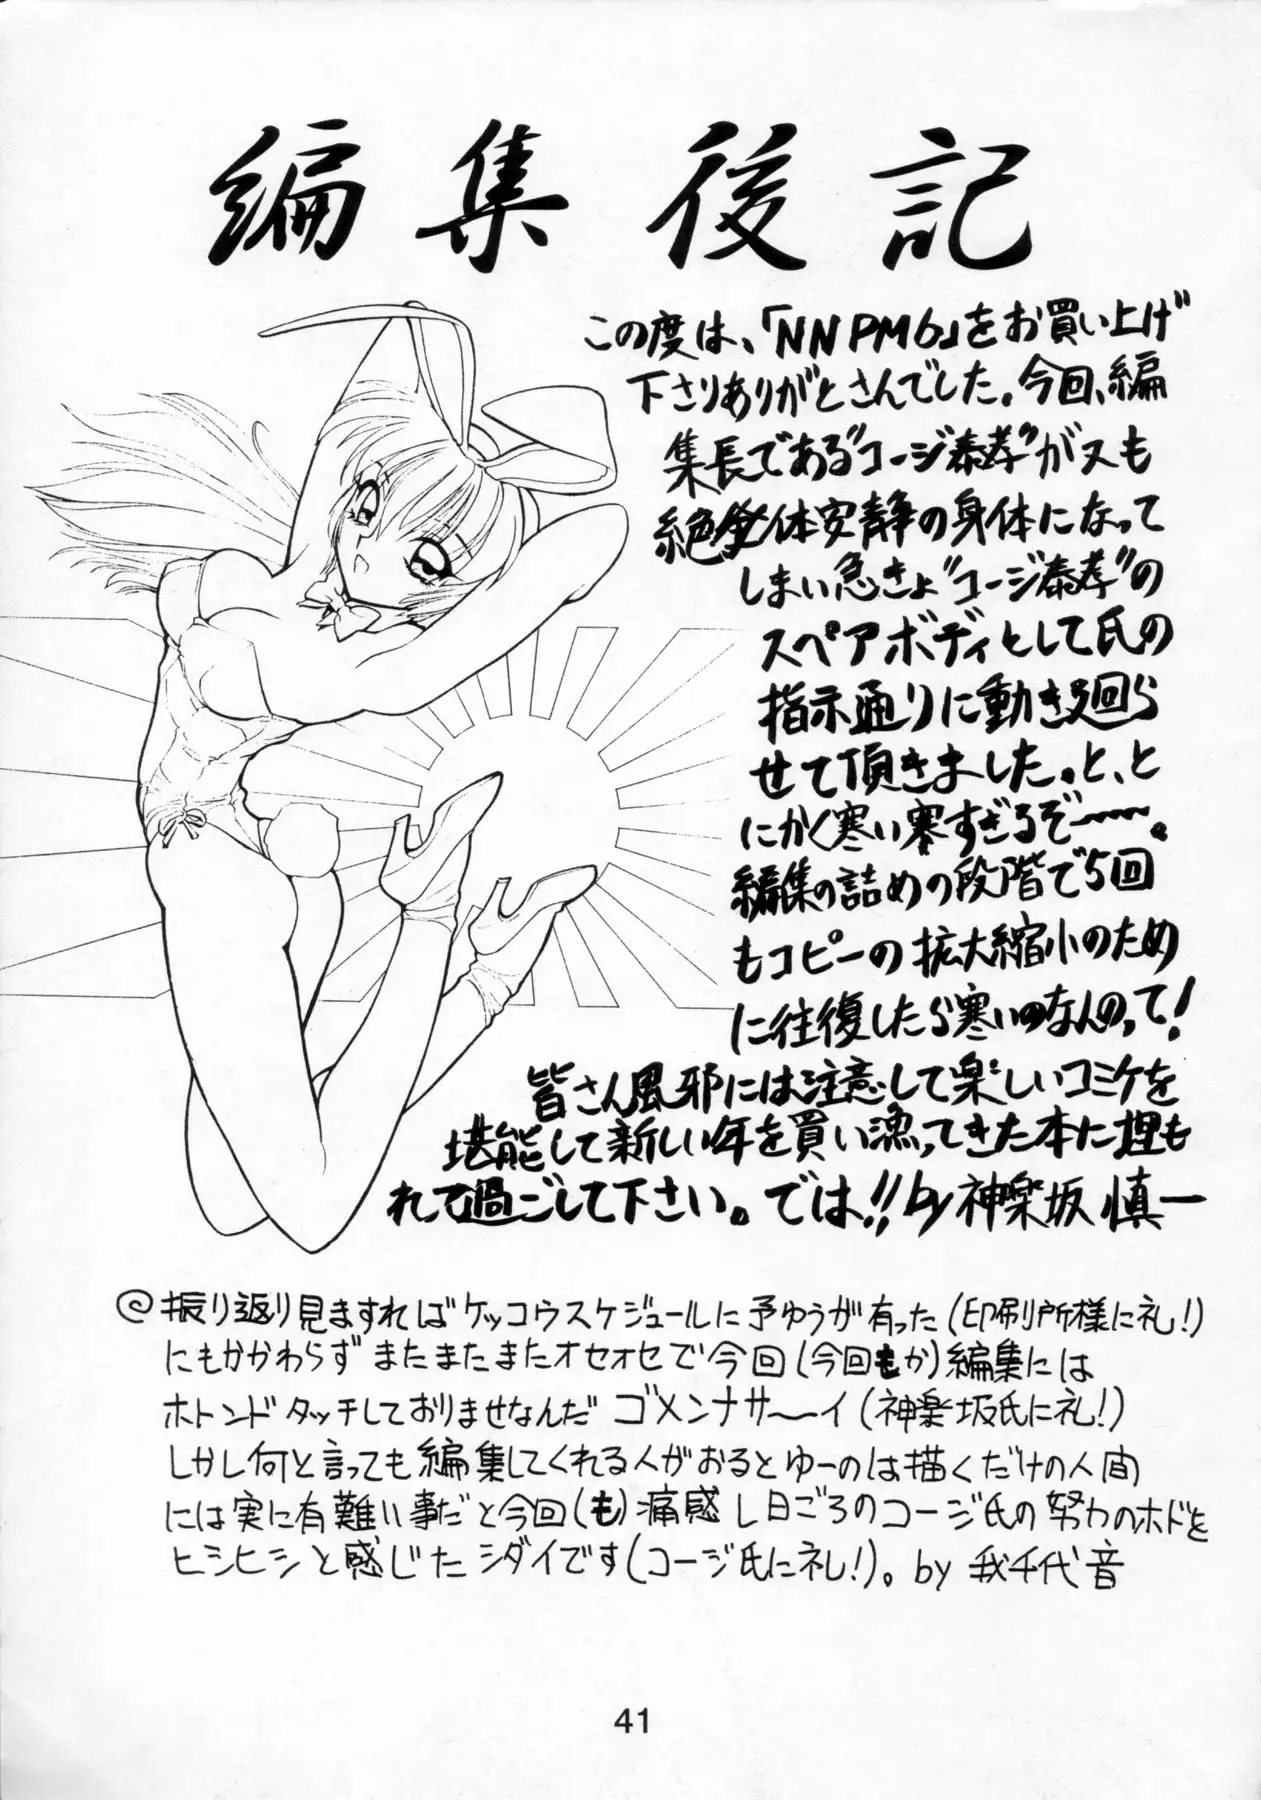 編集後記
この度は、「NNPM6」をお買い上げ
下さりありがとさんでした。今回、編
集長である"コージ泰孝"が又も
絶対体安静の身体になって
しまい急きょ"コージ泰孝"の
スペアボディとして氏の
指示通りに動き廻ら
せて頂きました。と、と
にかく寒い寒すぎるぞ〜〜。
編集の詰めの段階で5回
もコピーの拡大縮小のため
に往復したら寒いのなんのって!
皆さん風邪には注意して楽しいコミケを
堪能して新しい年を買い漁ってきた本に埋も
れて過ごして下さい。では!!by神楽坂 慎一
@振り返り見ますればケッコウスケジュールに予ゆうが有った(印刷所様に礼!)
にもかかわらずまたまたまたオセオセで今回(今回もか)編集には
ホトンドタッチしておりませなんだ ゴメンナサ〜イ(神楽坂氏に礼!)
しかし何と言っても編集してくれる人がおるとゆーのは描くだけの人間
には実に有難い事だと今回(も)痛感し日ごろのコージ氏の努力のホドを
ヒシヒシと感じたシダイです(コージ氏に礼!)。by 我千代音
41